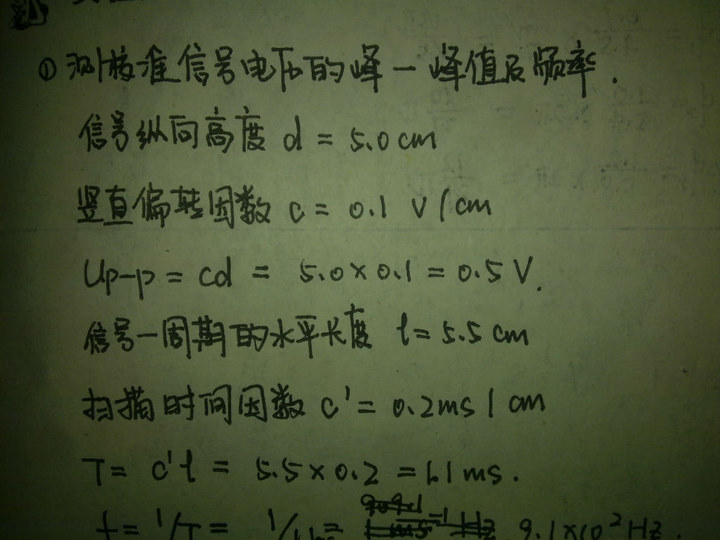 ① 测校准信号电压的峰一峰值及频率.
信号纵向高度 d = 5.0cm
竖直偏转因数 c = 0.1 V/cm
Up-p = cd = 5.0×0.1 = 0.5 V.
信号一周期的水平长度 l = 5.5 cm
扫描时间因数 c' = 0.2ms/cm
T = c'l = 5.5×0.2 = 1.1ms.
f = 1/T = 9.1×10² Hz.